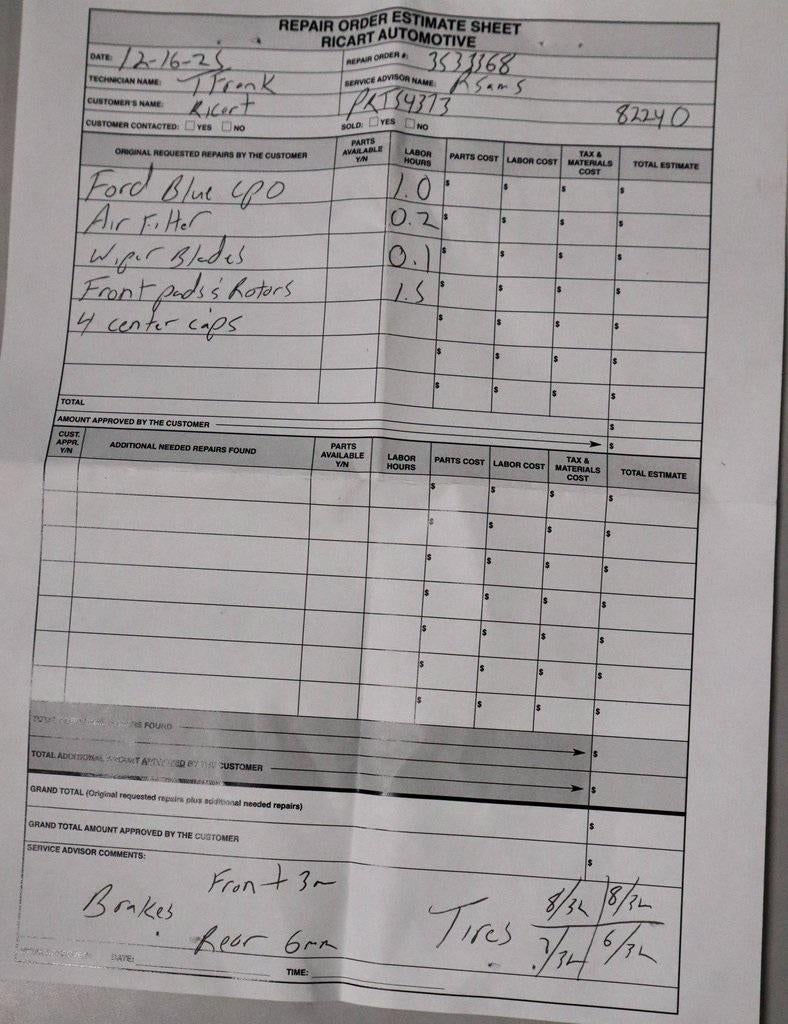 REPAIR ORDER ESTIMATE SHEET
RICART AUTOMOTIVE
DATE: 12-16-25 REPAIR ORDER #: 3533368
TECHNICIAN NAME: T Frank SERVICE ADVISOR NAME: R Sams
CUSTOMER'S NAME: Ricart PRTS4373 82240
CUSTOMER CONTACTED: YES NO SOLD: YES NO
ORIGINAL REQUESTED REPAIRS BY THE CUSTOMER PARTS AVAILABLE Y/N LABOR HOURS PARTS COST LABOR COST TAX & MATERIALS COST TOTAL ESTIMATE
Ford Blue CPO 1.0 $ $ $ $
Air Filter 0.2 $ $ $ $
Wiper Blades 0.1 $ $ $ $
Front pads & Rotors 1.5 $ $ $ $
4 center caps $ $ $ $
$ $ $ $
$ $ $ $
TOTAL $
AMOUNT APPROVED BY THE CUSTOMER $
CUST. APPR. Y/N ADDITIONAL NEEDED REPAIRS FOUND PARTS AVAILABLE Y/N LABOR HOURS PARTS COST LABOR COST TAX & MATERIALS COST TOTAL ESTIMATE
$ $ $ $
$ $ $ $
$ $ $ $
$ $ $ $
$ $ $ $
$ $ $ $
$ $ $ $
FOUND $
TOTAL ADDITIONAL AMOUNT APPROVED BY THE CUSTOMER $
GRAND TOTAL (Original requested repairs plus additional needed repairs) $
GRAND TOTAL AMOUNT APPROVED BY THE CUSTOMER $
SERVICE ADVISOR COMMENTS:
Front 3m
Brakes
Rear 6mm
Tires 8/32 8/32
7/32 6/32
DATE: TIME: